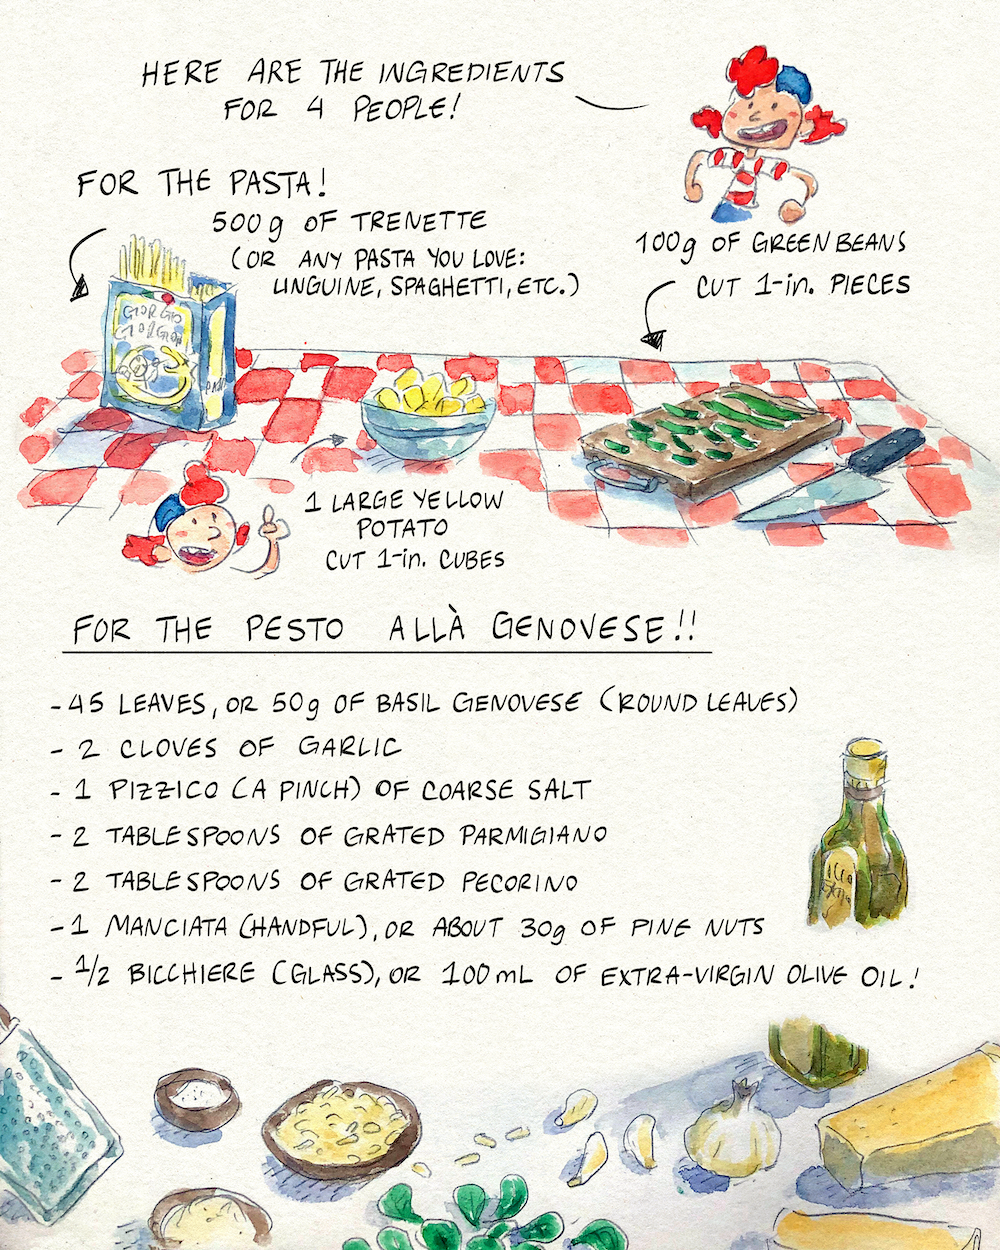 HERE ARE THE INGREDIENTS
FOR 4 PEOPLE!
FOR THE PASTA!
500g OF TRENETTE
(OR ANY PASTA YOU LOVE:
LINGUINE, SPAGHETTI, ETC.)
100g OF GREEN BEANS
CUT 1-in. PIECES
GIORGIO
1 LARGE YELLOW
POTATO
CUT 1-in. CUBES
FOR THE PESTO ALLÀ GENOVESE!!
- 45 LEAVES, OR 50g OF BASIL GENOVESE (ROUND LEAVES)
- 2 CLOVES OF GARLIC
- 1 PIZZICO (A PINCH) OF COARSE SALT
- 2 TABLESPOONS OF GRATED PARMIGIANO
- 2 TABLESPOONS OF GRATED PECORINO
- 1 MANCIATA (HANDFUL), OR ABOUT 30g OF PINE NUTS
- 1/2 BICCHIERE (GLASS), OR 100mL OF EXTRA-VIRGIN OLIVE OIL!